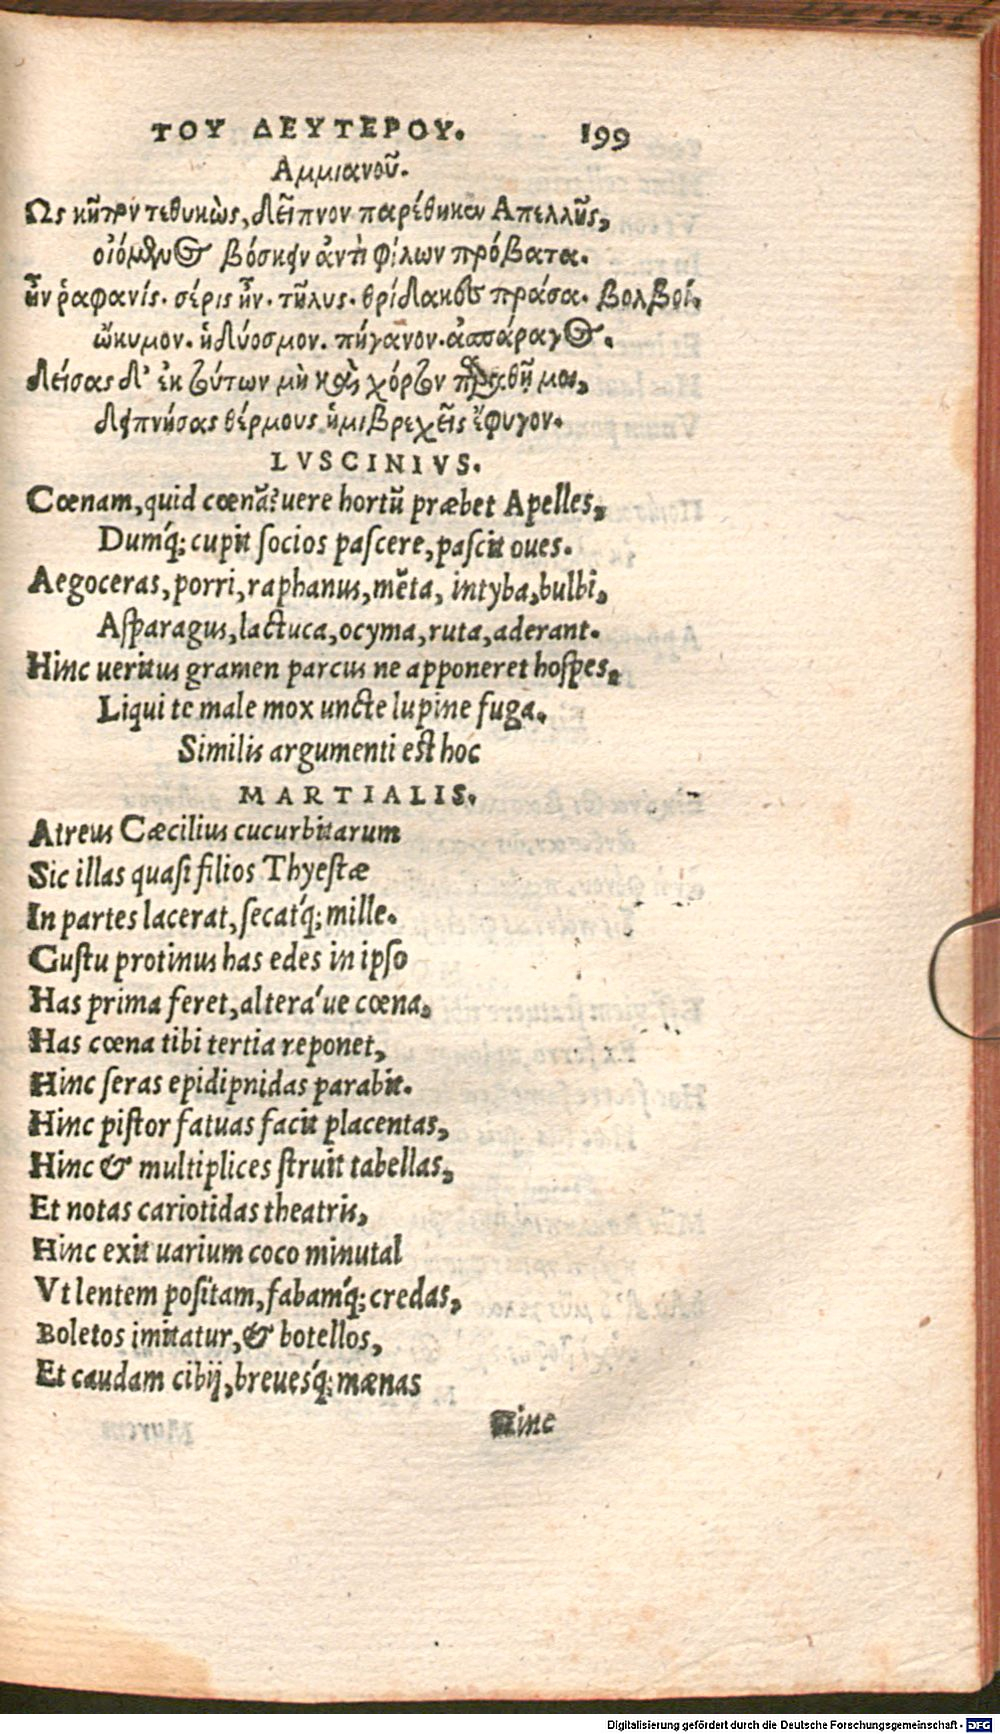 ΤΟΥ ΔΕΥΤΕΡΟΥ. 199
Αμμιανοῦ.
Ως κῆπον τεθυκὼς, δεῖπνον παρέθηκεν Απελλῆς,
οἰόμενος βόσκειν ἀντὶ φίλων πρόβατα.
ἦν ῥαφανίς. σέρις ἦν. τῆλις. θρίδακες πράσα. βολβοί.
ὤκυμον. ἡδύοσμον. πήγανον. ἀσπάραγος.
δείσας δ' ἐκ τούτων μὴ καὶ χόρτον παραθῇ μοι,
δειπνήσας θέρμους ἡμιβρεχεῖς ἔφυγον.
LVSCINIVS.
Cœnam, quid cœnā? uere hortū præbet Apelles,
Dumq́; cupit socios pascere, pascit oues.
Aegoceras, porri, raphanus, mēta, intyba, bulbi,
Asparagus, lactuca, ocyma, ruta, aderant.
Hinc ueritus gramen parcus ne apponeret hospes,
Liqui te male mox uncte lupine fuga.
Similis argumenti est hoc
MARTIALIS.
Atreus Cæcilius cucurbitarum
Sic illas quasi filios Thyestæ
In partes lacerat, secatq́; mille.
Gustu protinus has edes in ipso
Has prima feret, altera´ue cœna,
Has cœna tibi tertia reponet,
Hinc seras epidipnidas parabit.
Hinc pistor fatuas facit placentas,
Hinc & multiplices struit tabellas,
Et notas cariotidas theatris,
Hinc exit uarium coco minutal
Vt lentem positam, fabamq́; credas,
Boletos imitatur, & botellos,
Et caudam cibij, breuesq́; mænas
Hinc
Digitalisierung gefördert durch die Deutsche Forschungsgemeinschaft - DFG